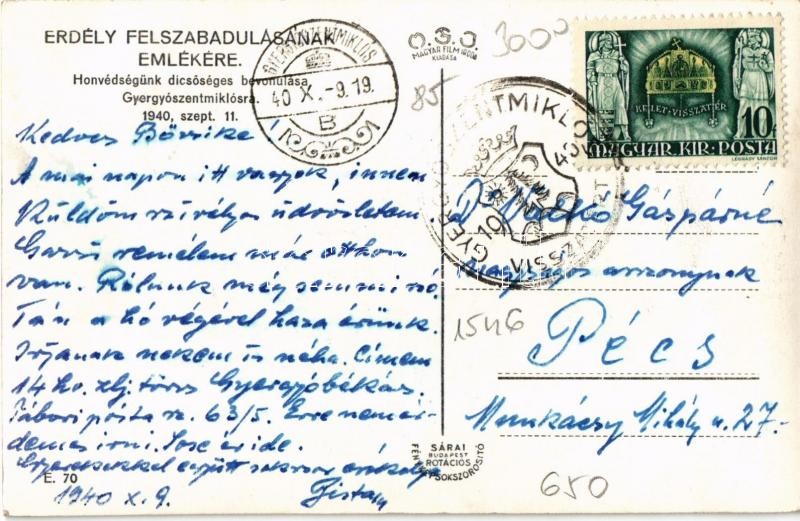 ERDÉLY FELSZABADULÁSÁNAK
EMLÉKÉRE.
Honvédségünk dicsőséges bevonulása
Gyergyószentmiklósra.
1940, szept. 11.
GYERGYÓSZENTMIKLÓS
40 X. -9. 19
B
O.S.J.
MAGYAR FILM IRODA
KIADÁSA
3000
85
KELET VISSZATÉR
10
MAGYAR KIR. POSTA
LÉGRÁDY SÁNDOR
GYERGYÓSZENTMIKLÓS
VISSZATÉRT
Kedves Bözsike!
A mai napon itt vagyok, innen
küldöm szívélyes üdvözletem.
remélem már otthon
van. Rólunk még semmi szó.
Tán a hó végével haza érünk.
Írjanak nekem is néha. Címem
14 hv. zlj. törzs Gyergyóbékás.
Tábori posta sz. 63/5. Erre nem ér-
demes írni. Sose ér ide.
Gyerekekkel együtt sokszor
1940 X. 9. Pista
Dr Vadkó Gáspárné
nagyságos asszonynak
1546
Pécs
Munkácsy Mihály u. 27.-
SÁRAI
BUDAPEST
ROTÁCIÓS
FÉNYKÉPSOKSZOROSÍTÓ
E. 70
650